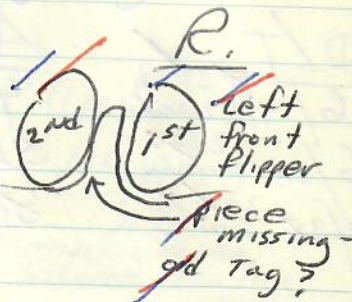 R.
2nd
1st
Left
front
flipper
piece
missing -
old Tag?